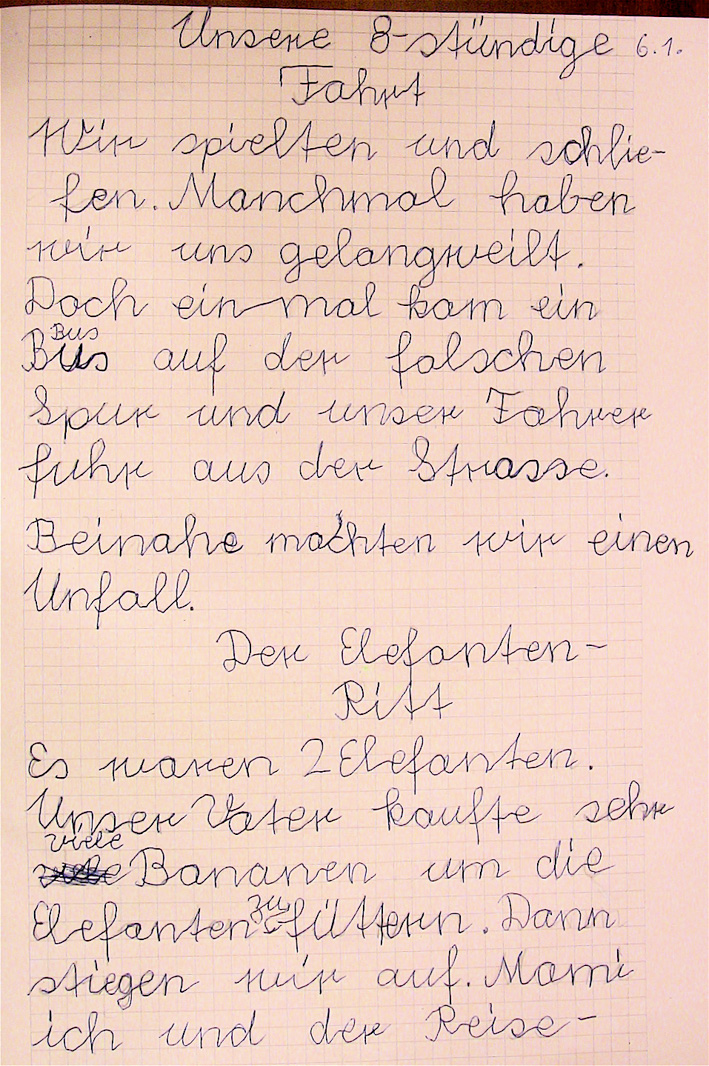 Unsere 8-stündige 6.1.
Fahrt
Wir spielten und schlie-
fen. Manchmal haben
wir uns gelangweilt.
Doch ein mal kam ein
Bus
Bus auf der falschen
Spur und unser Fahrer
fuhr aus der Strasse.
Beinahe machten wir einen
Unfall.
Der Elefanten-
Ritt
Es waren 2 Elefanten.
Unser Vater kaufte sehr
viele
Bananen um die
zu
Elefanten füttern. Dann
stiegen wir auf. Mami
ich und der Reise-